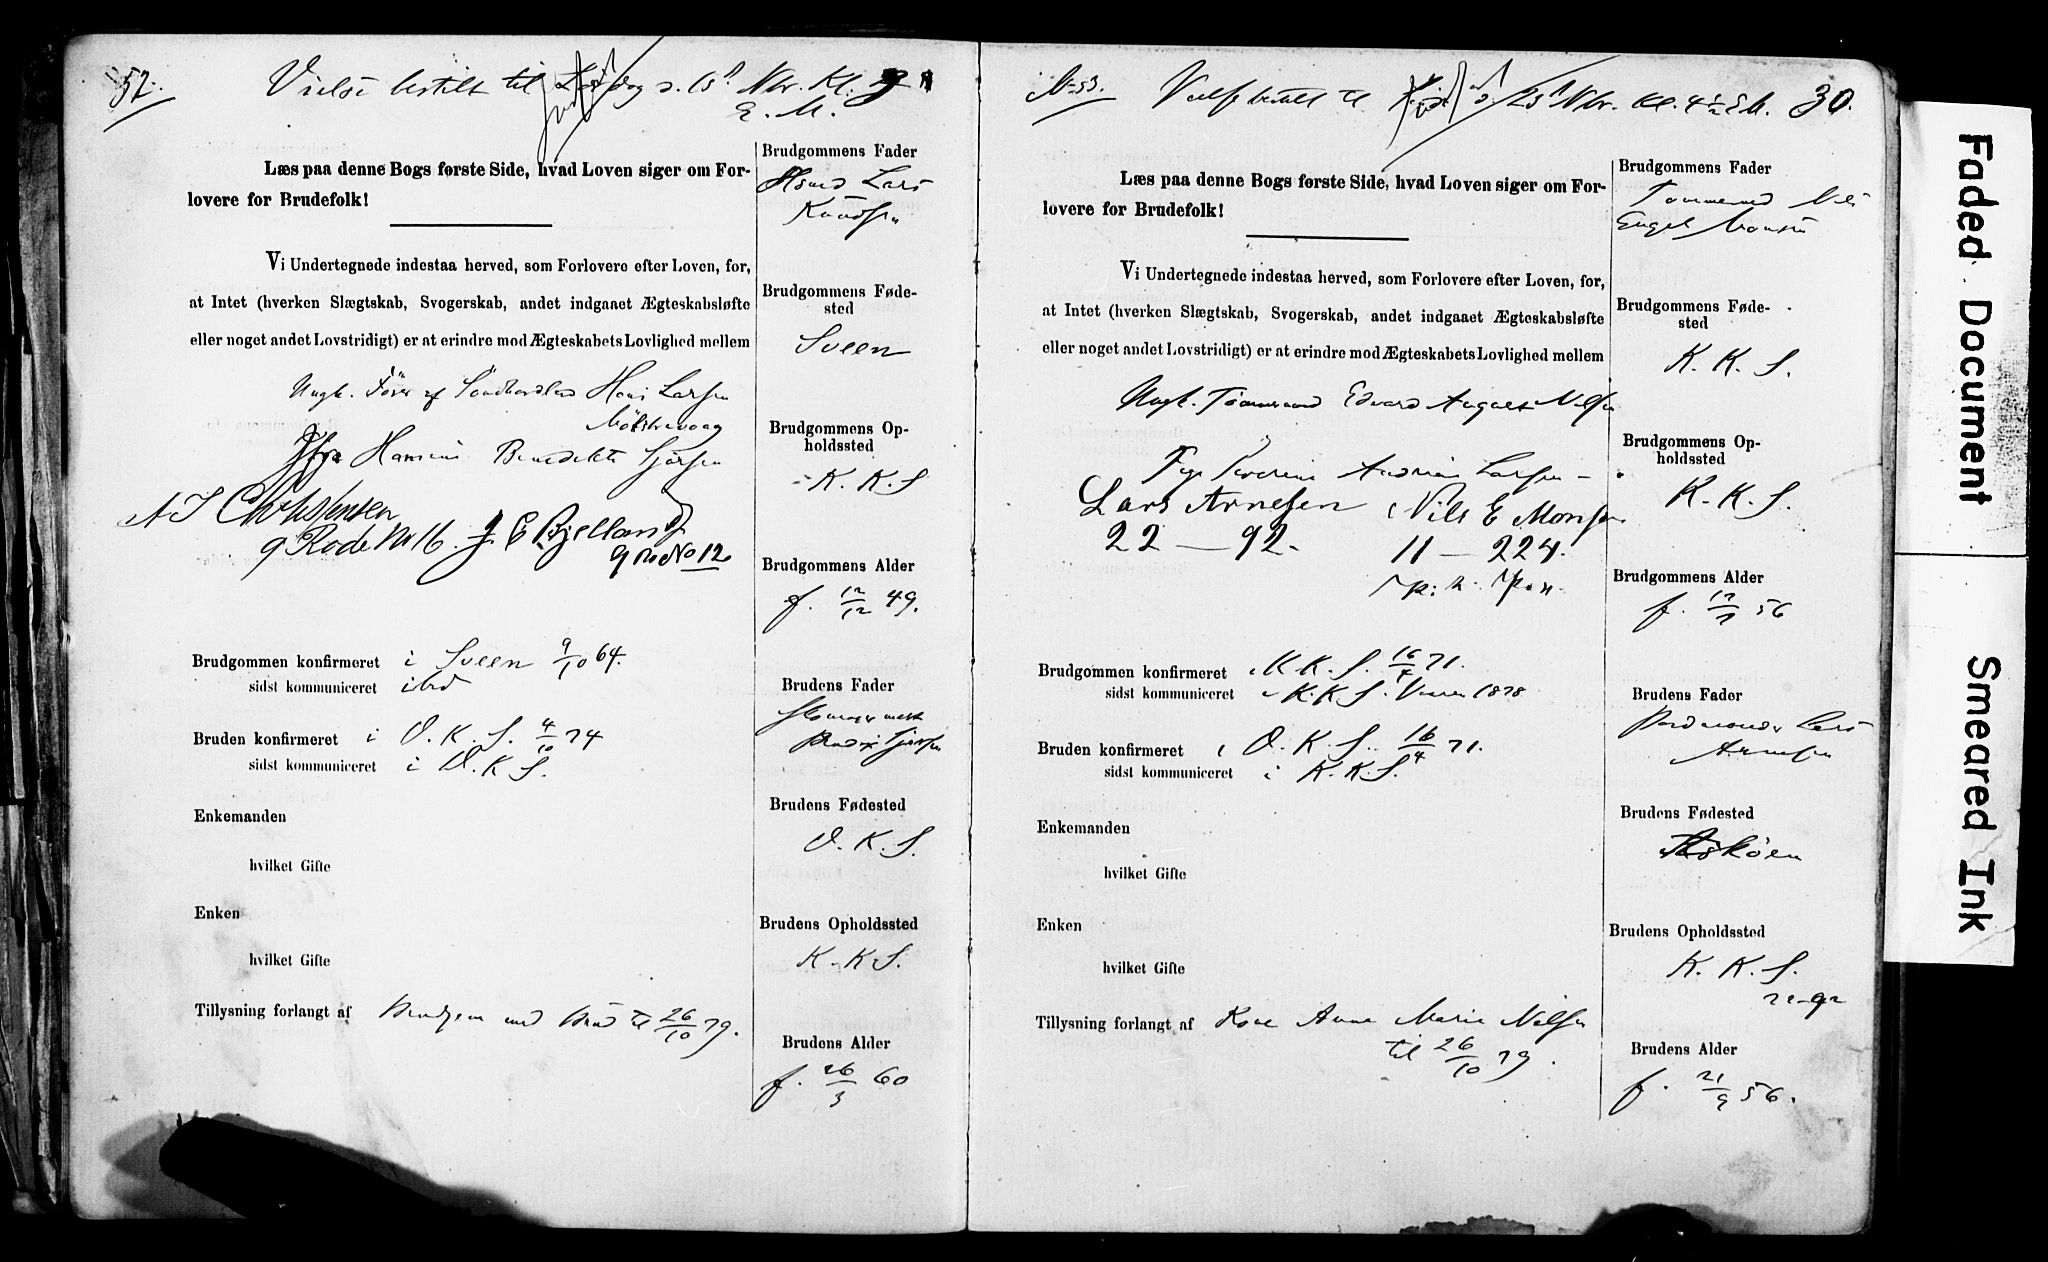 52.
Vielse bestilt til d. 15 Nbr. Kl.
E. M.
Læs paa denne Bogs første Side, hvad Loven siger om For-
lovere for Brudefolk!
Vi Undertegnede indestaa herved, som Forlovere efter Loven, for,
at Intet (hverken Slægtskab, Svogerskab, andet indgaaet Ægteskabsløfte
eller noget andet Lovstridigt) er at erindre mod Ægteskabets Lovlighed mellem
Ungk. Fører af Søndhordland Hans Larsen
Hansine Benedikte
A J Christensen
9 Rode No 16 J. E. Bjelland
9 Ro No 12
Brudgommen konfirmeret i Sveen 9/10 64.
sidst kommuniceret ibid
Bruden konfirmeret i D. K. S. 4/10 74
sidst kommuniceret i D. K. S.
Enkemanden
hvilket Gifte
Enken
hvilket Gifte
Tillysning forlangt af Brudgom med Brud til 26/10 79.
Brudgommens Fader
Lars
Knudsen
Brudgommens Føde-
sted
Sveen
Brudgommens Op-
holdssted
K. K. S
Brudgommens Alder
f. 12/12 49.
Brudens Fader
Brudens Fødested
D. K. S.
Brudens Opholdssted
K. K. S.
Brudens Alder
f. 26/3 60
No 53. Vielse bestilt til d. 23 Nbr. Kl. 4 1/2 E M. 30.
Læs paa denne Bogs første Side, hvad Loven siger om For-
lovere for Brudefolk!
Vi Undertegnede indestaa herved, som Forlovere efter Loven, for,
at Intet (hverken Slægtskab, Svogerskab, andet indgaaet Ægteskabsløfte
eller noget andet Lovstridigt) er at erindre mod Ægteskabets Lovlighed mellem
Ungk. Tømmermand Edvard August Nilsen
Pige Severine Andrea Larsen
Lars Arnesen Nils E Monsen
22 — 92. 11 — 224.
Brudgommen konfirmeret i K. K. S. 16/4 71.
sidst kommuniceret i K. K. S. 1878
Bruden konfirmeret i D. K. S. 16/4 71.
sidst kommuniceret i K. K. S.
Enkemanden
hvilket Gifte
Enken
hvilket Gifte
Tillysning forlangt af Kone Anne Marie Nilsen
til 26/10 79.
Brudgommens Fader
Tømmermd Nils
Engel Monsen
Brudgommens Føde-
sted
K. K. S.
Brudgommens Op-
holdssted
K. K. S.
Brudgommens Alder
f. 56
Brudens Fader
Lars
Arnesen
Brudens Fødested
Askøen
Brudens Opholdssted
K. K. S.
22-92
Brudens Alder
f. 21/9 56.
Faded Document
Smeared Ink